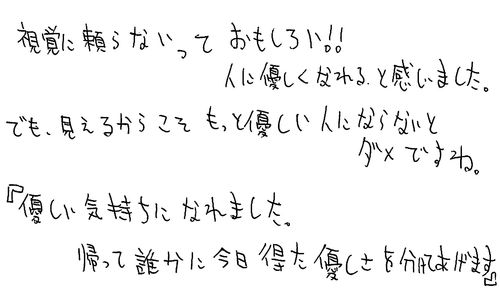 視覚に頼らないって おもしろい!!
人に優しくなれる、と感じました。
でも、見えるからこそ もっと優しい人にならないと
ダメですね。
『優しい気持ちになれました。
帰って誰かに今日得た優しさを分けてあげます』